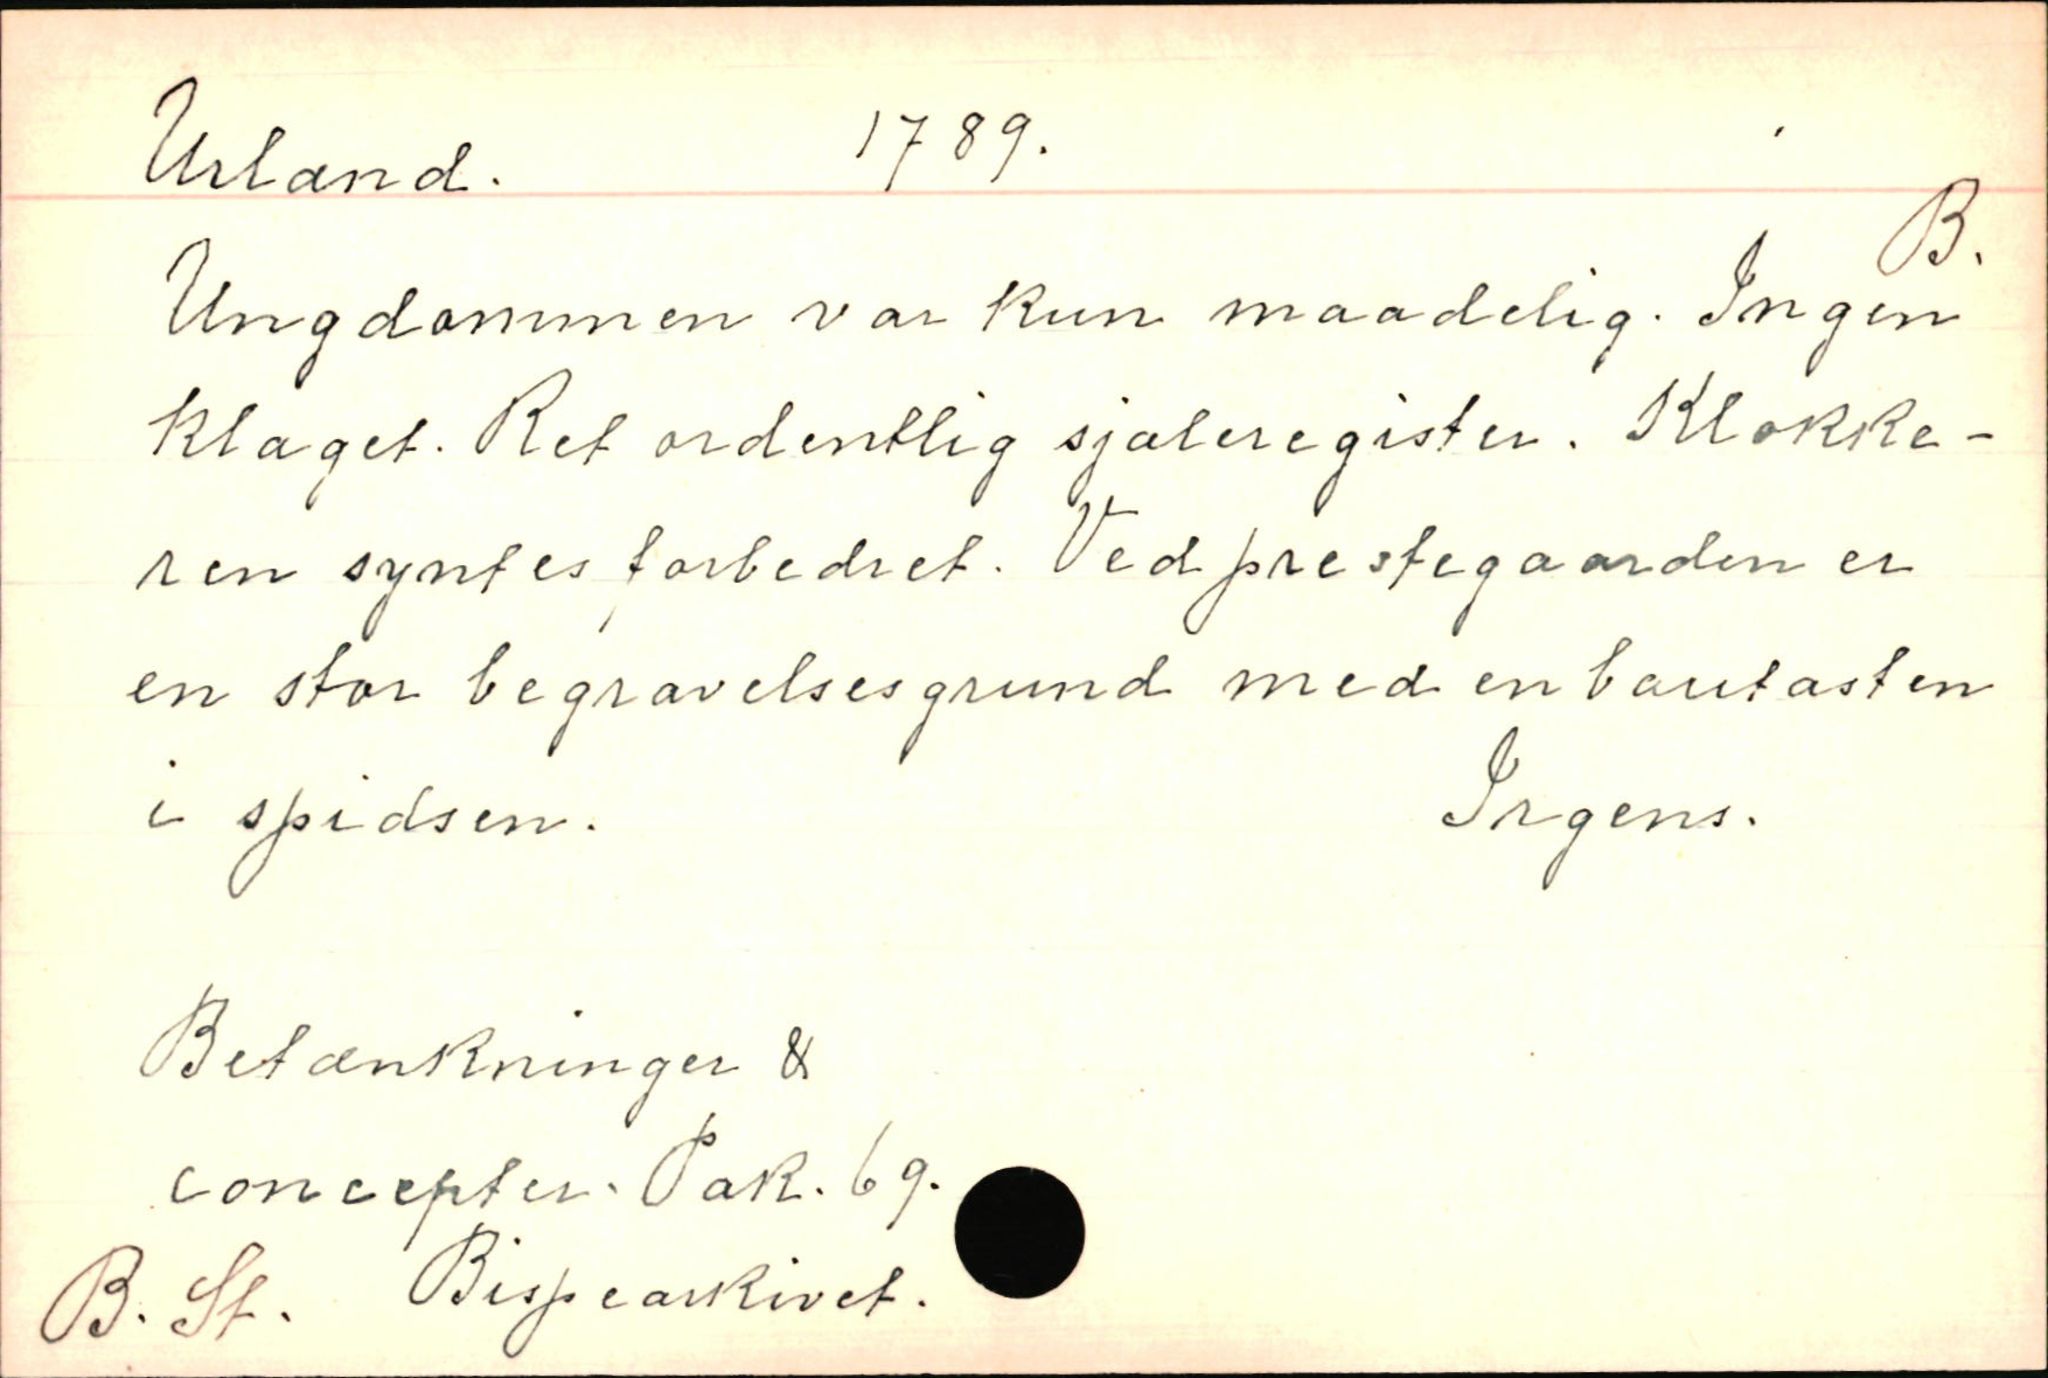 Urland. 1789.
B.
Ungdommen var kun maadelig. Ingen
klaget. Ret ordentlig sjæleregister. Klokke-
ren syntes forbedret. Ved prestegaarden er
en stor begravelsesgrund med en bautasten
i spidsen. Irgens.
Betænkninger &
concepter. Pak. 69.
B. St. Bispearkivet.